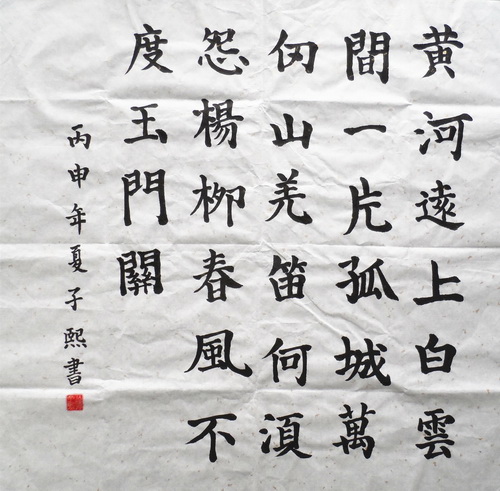 黄河遠上白雲
間一片孤城萬
仞山羌笛何湏
怨楊柳春風不
度玉門關
丙申年夏子熙書